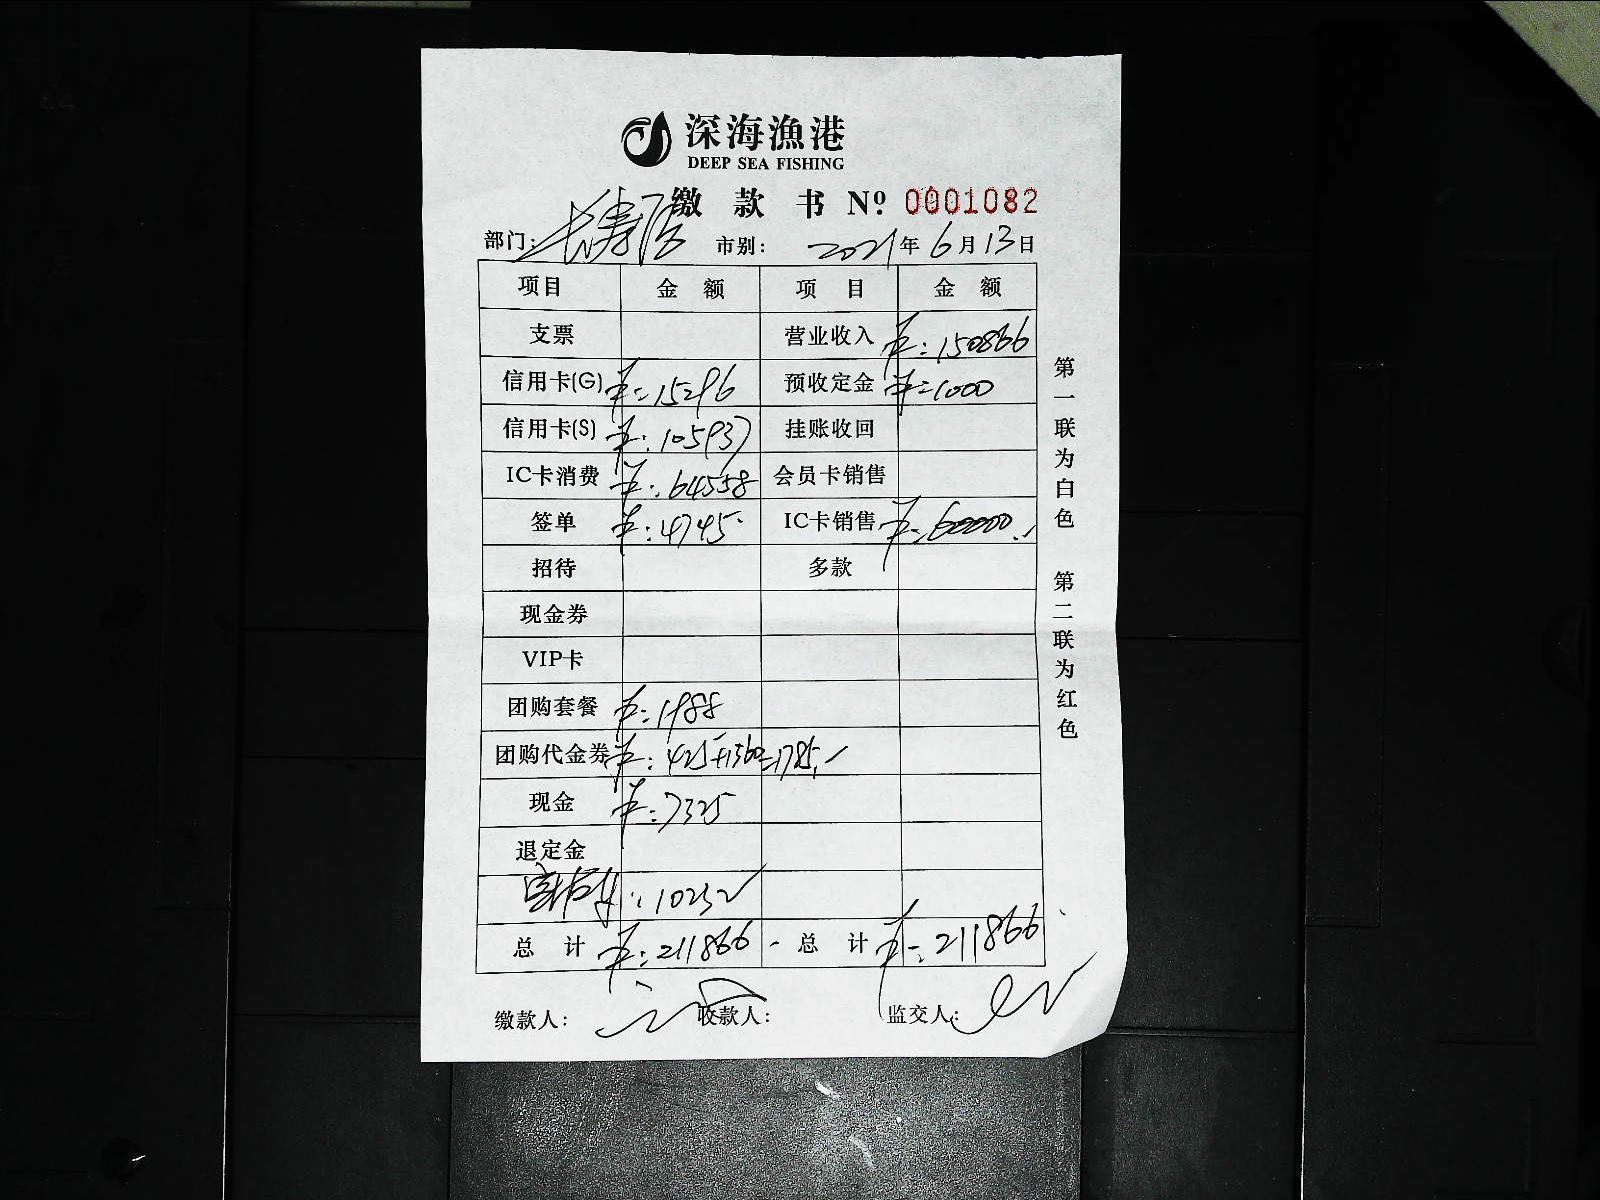 深海漁港
DEEP SEA FISHING
缴 款 书 Nº 0001082
部门: 长寿店 市别: 2021年6月13日
项目 金 额 项 目 金 额
支票 营业收入 ¥:150866
信用卡(G) ¥:15296 预收定金 ¥:1000
信用卡(S) ¥:105937 挂账收回
IC卡消费 ¥:64558 会员卡销售
签单 ¥:4745 IC卡销售 ¥:60000
招待 多款
现金券
VIP卡
团购套餐 ¥:1988
团购代金券 ¥:425+1360=1785
现金 ¥:7325
退定金
:10232
总 计 ¥:211866 总 计 ¥:211866
缴款人: 收款人: 监交人:
第一联为白色 第二联为红色